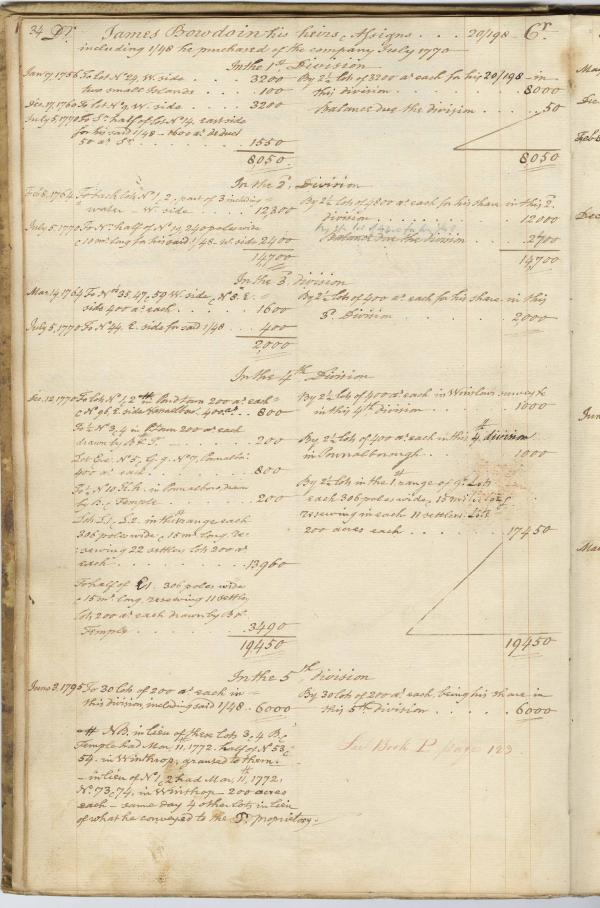 34 Dr. James Bowdoin his heirs & Assigns . . . 20/198 Cr
including 1/48 he purchased of the company July 1770
In the 1st Division
Jany 7, 1756 To lot No 24, W. side . . . 3200
two small Islands . . . 100
Dec. 17, 1760 To lot No 9, W. side . . . 3200
July 5, 1770 To So half of lot No 14, east side
for his said 1/48 - 1600 as deduct
50 as . . . 1550
8,050
By 2½ lots of 3200 as each for his 20/198 in
this division . . . 8000
Balance due the division . . . 50
8,050
In the 2d Division
Feb 8, 1764 To back lots No 1, 2, & part of 3 including
water - W. side . . . 12,300
July 5, 1770 To No half of No 19, 240 poles wide
& 10 ms long for his said 1/48. W. side 2400
14,700
By 2½ lots of 4800 as each for his share in this 2d
division . . . 12000
Balance due the division . . . 2700
14,700
In the 3d division
Mar 14 1764 To Nos 35, 47, & 59 W. side, & No 8. E.
side 400 as each . . . 1600
July 5, 1770 To No 44. E. side for said 1/48 . . . 400
2,000
By 2½ lots of 400 as each for his share in this
3d Division . . . 2000
In the 4th Division
Dec. 12 1770 To lots No 1, 2 # in Pondtown 200 as each
& No 96, E. side 400 as . . . 800
To ½ No 3, 4 in Ptown 200 as each
drawn by B & T . . . 200
No 5, G. 9. No 7, Pownalbo:
400 as each . . . 800
To ½ No 10 H.h. in Pownalboro, drawn
by B. & Temple . . . 200
Lots L1, L2. in the range each
306 poles wide & 15 ms long, re-
serving 22 settlers lots 200 as
each . . . 13960
To half of E1. 306 poles wide
& 15 ms long, reserving 11 settlers
lots 200 as each drawn by B &
Temple . . . 3490
19450
By 2½ lots of 400 as each in Winslow's survey &
in this 4th division . . . 1000
By 2½ lots of 400 as each in this 4th division
in Pownalborough . . . 1000
By 2½ lots in the 1st range of Lots
each 306 poles wide, & 15 miles long
reserving in each 11 settlers Lots
200 acres each . . . 17450
19450
In the 5th division
June 3, 1795 To 30 lots of 200 as each in
this division, including said 1/48 . 6000
By 30 lots of 200 as each, being his share in
this 5th Division . . . 6000
# NB. in lieu of these lots 3, & 4 B &
Temple had Mar. 11, 1772. half of No 53 &
54. in Winthrop, granted to them.
- in lieu of No 1, & 2 had Mar. 11, 1772,
No 73, & 74, in Winthrop - 200 acres
each - same day 4 other lots in lieu
of what he conveyed to the proprietory.
See Book P page 123